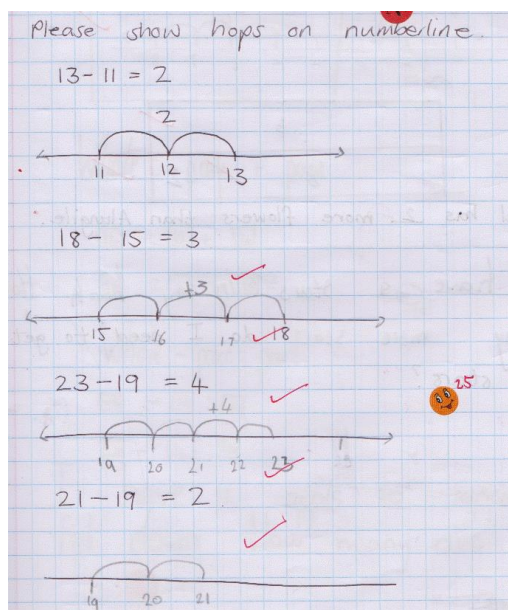 Please show hops on numberline.
13 - 11 = 2
2
11 12 13
18 - 15 = 3
+3
15 16 17 18
23 - 19 = 4
25
+4
19 20 21 22 23
21 - 19 = 2
19 20 21